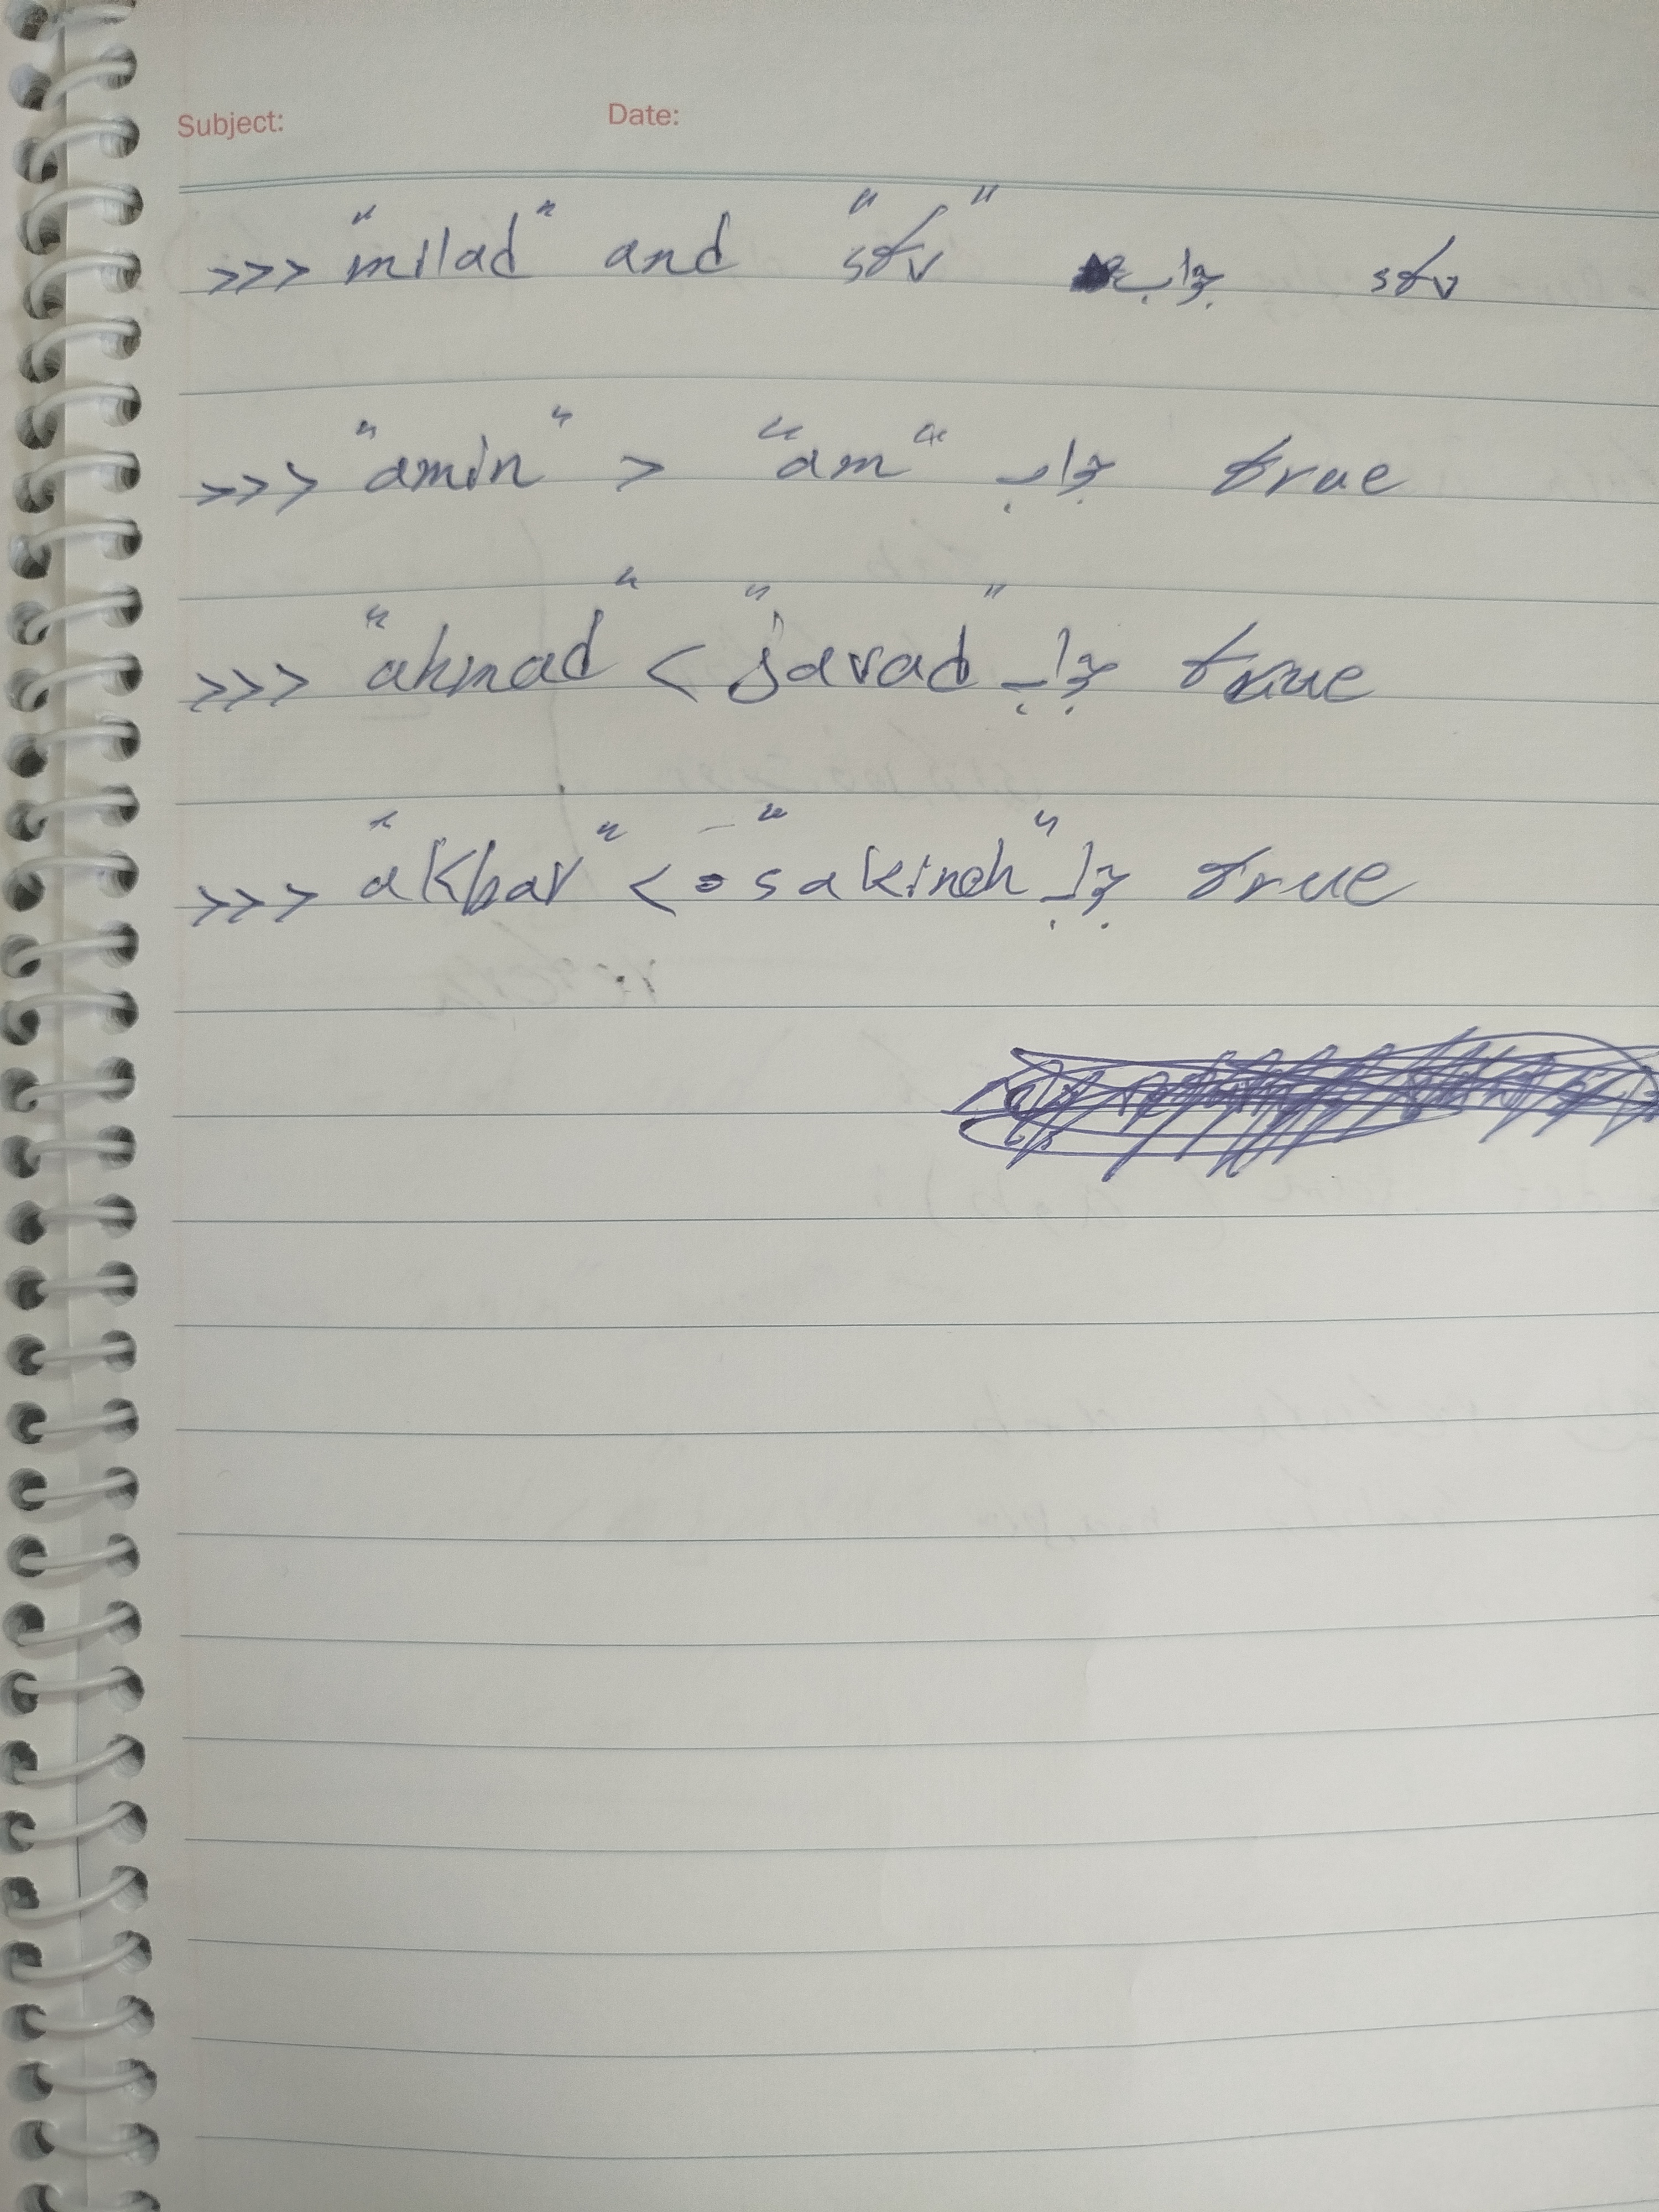 Subject: Date:
>>> "milad" and "stv" جواب stv
>>> "amin" > "am" جواب true
>>> "ahmad" < "javad" جواب true
>>> "akbar" <= "sakineh" جواب true